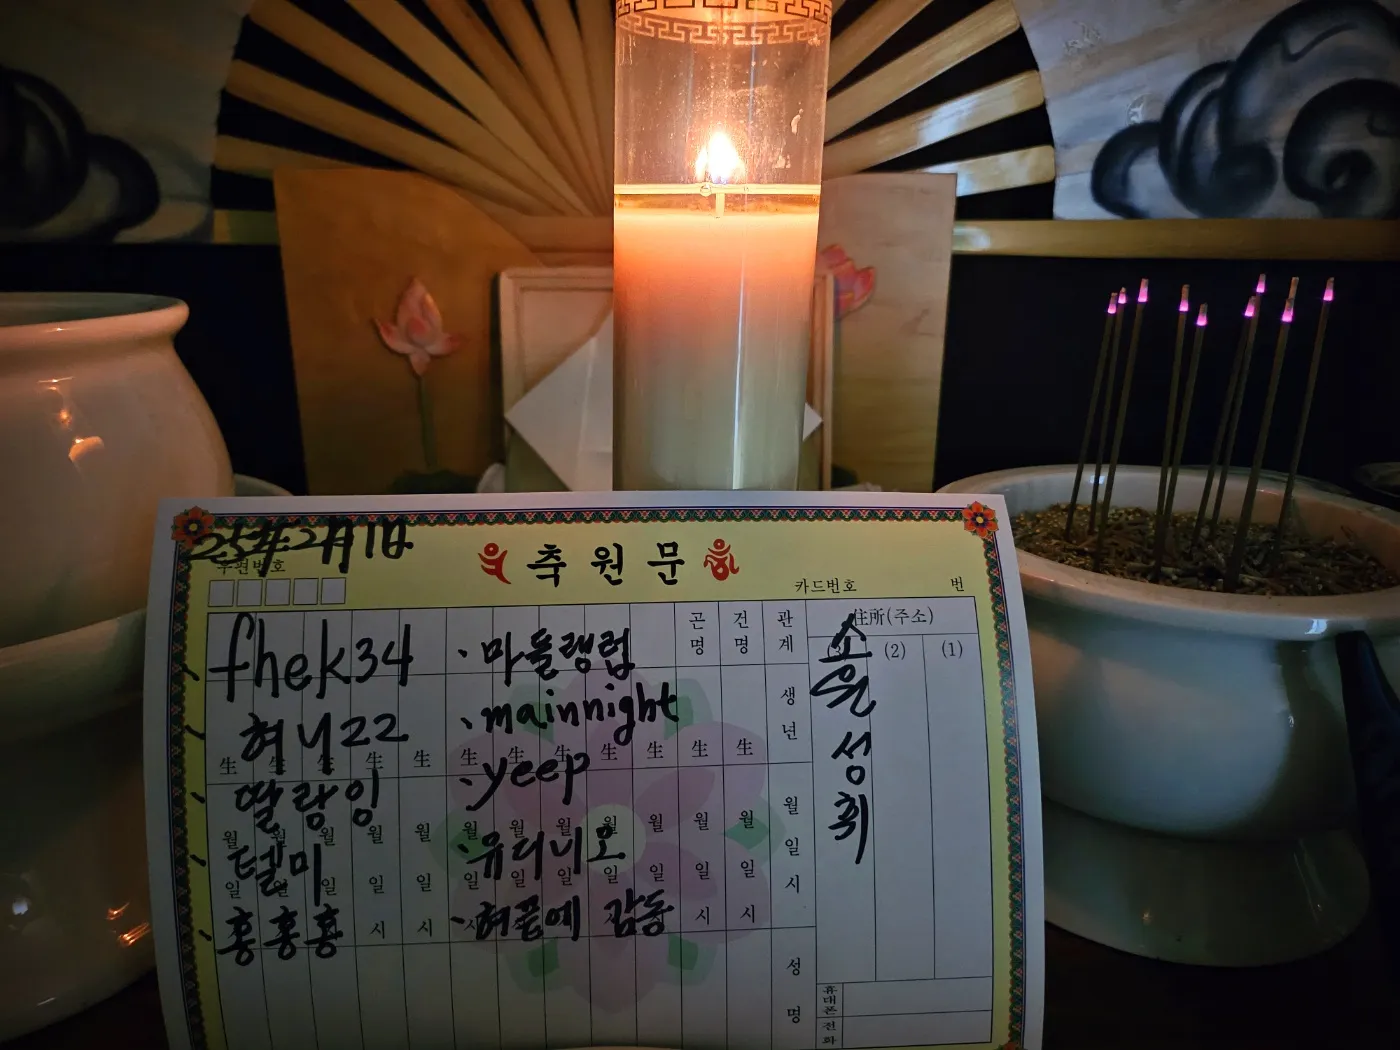 25年 2月 1日
우편번호
축원문
카드번호 번
fhek34
혀니22
딸랑잉
텔미
홍홍홍
· 마돌랭럽
· mainnight
· yeep
· 유더니오
· 혀끝에 감동
곤명 건명 관계
생년
生 生 生 生 生 生 生 生 生 生 生 生
월 월 월 월 월 월 월 월 월 월 월 월
일 일 일 일 일 일 일 일 일 일 일 일
시 시 시 시 시
월일시
성명
住所(주소)
(2) (1)
소원성취
휴대폰
전화